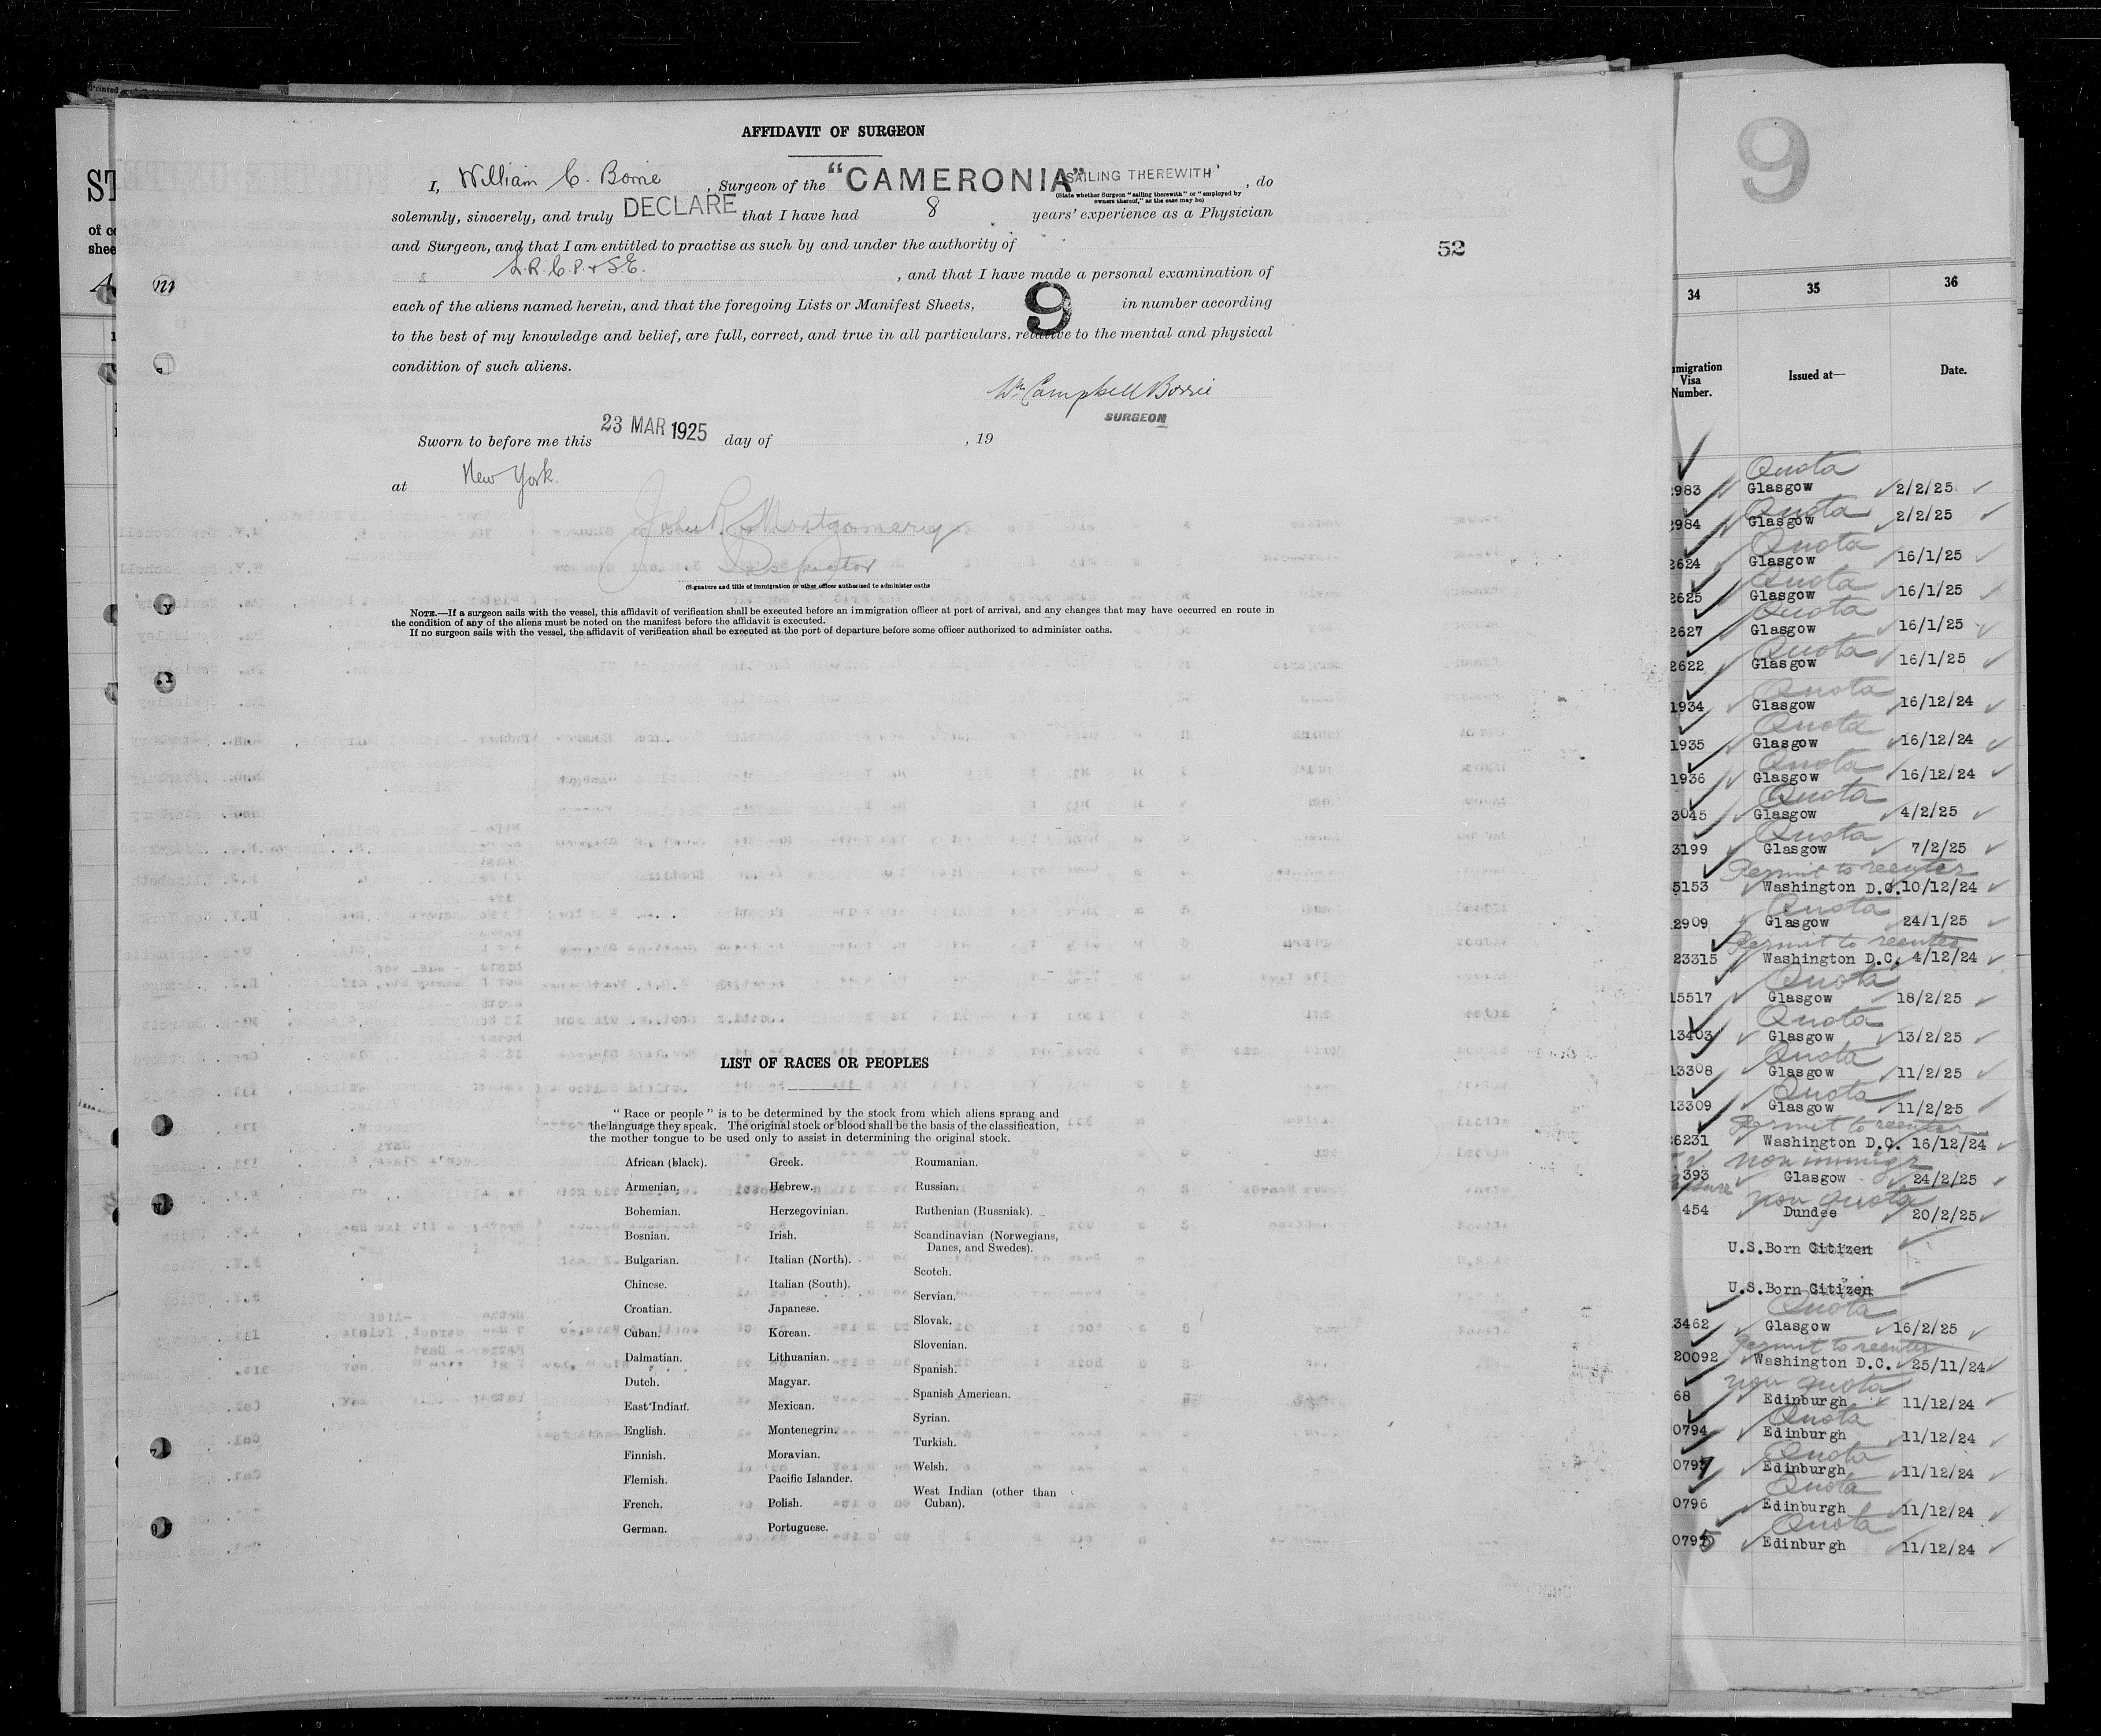 AFFIDAVIT OF SURGEON
I, William C. Borrie, Surgeon of the "CAMERONIA" SAILING THEREWITH, do
(State whether Surgeon "sailing therewith" or "employed by
owners thereof," as the case may be)
solemnly, sincerely, and truly DECLARE that I have had 8 years' experience as a Physician
and Surgeon, and that I am entitled to practise as such by and under the authority of
L.R.C.P. & S.E. , and that I have made a personal examination of
each of the aliens named herein, and that the foregoing Lists or Manifest Sheets, 9 in number according
to the best of my knowledge and belief, are full, correct, and true in all particulars, relative to the mental and physical
condition of such aliens.
Wm Campbell Borrie
SURGEON
Sworn to before me this 23 MAR 1925 day of , 19
at New York.
John R. Montgomery
Inspector
(Signature and title of immigration or other officer authorized to administer oaths
NOTE.—If a surgeon sails with the vessel, this affidavit of verification shall be executed before an immigration officer at port of arrival, and any changes that may have occurred en route in
the condition of any of the aliens must be noted on the manifest before the affidavit is executed.
If no surgeon sails with the vessel, the affidavit of verification shall be executed at the port of departure before some officer authorized to administer oaths.
52
LIST OF RACES OR PEOPLES
"Race or people" is to be determined by the stock from which aliens sprang and
the language they speak. The original stock or blood shall be the basis of the classification,
the mother tongue to be used only to assist in determining the original stock.
African (black).
Armenian.
Bohemian.
Bosnian.
Bulgarian.
Chinese.
Croatian.
Cuban.
Dalmatian.
Dutch.
East Indian.
English.
Finnish.
Flemish.
French.
German.
Greek.
Hebrew.
Herzegovinian.
Irish.
Italian (North).
Italian (South).
Japanese.
Korean.
Lithuanian.
Magyar.
Mexican.
Montenegrin.
Moravian.
Pacific Islander.
Polish.
Portuguese.
Roumanian.
Russian.
Ruthenian (Russniak).
Scandinavian (Norwegians,
Danes, and Swedes).
Scotch.
Servian.
Slovak.
Slovenian.
Spanish.
Spanish American.
Syrian.
Turkish.
Welsh.
West Indian (other than
Cuban).
9
34 35 36
Visa
Number. Issued at— Date.
Quota
2983 Glasgow 2/2/25
Quota
2984 Glasgow 2/2/25
Quota
2624 Glasgow 16/1/25
Quota
2625 Glasgow 16/1/25
Quota
2627 Glasgow 16/1/25
Quota
2622 Glasgow 16/1/25
Quota
1934 Glasgow 16/12/24
Quota
1935 Glasgow 16/12/24
Quota
1936 Glasgow 16/12/24
Quota
3045 Glasgow 4/2/25
Quota
3199 Glasgow 7/2/25
Permit to reenter
5153 Washington D.C. 10/12/24
Quota
2909 Glasgow 24/1/25
Permit to reenter
23315 Washington D.C. 4/12/24
Quota
15517 Glasgow 18/2/25
Quota
13403 Glasgow 13/2/25
Quota
13308 Glasgow 11/2/25
Quota
13309 Glasgow 11/2/25
Permit to reenter
6231 Washington D.C. 16/12/24
non immigr
393 Glasgow 24/2/25
non quota
454 Dundee 20/2/25
U.S.Born Citizen
U.S.Born Citizen
Quota
3462 Glasgow 16/2/25
Permit to reenter
20092 Washington D.C. 25/11/24
non quota
68 Edinburgh 11/12/24
Quota
0794 Edinburgh 11/12/24
Quota
0797 Edinburgh 11/12/24
Quota
0796 Edinburgh 11/12/24
Quota
0795 Edinburgh 11/12/24